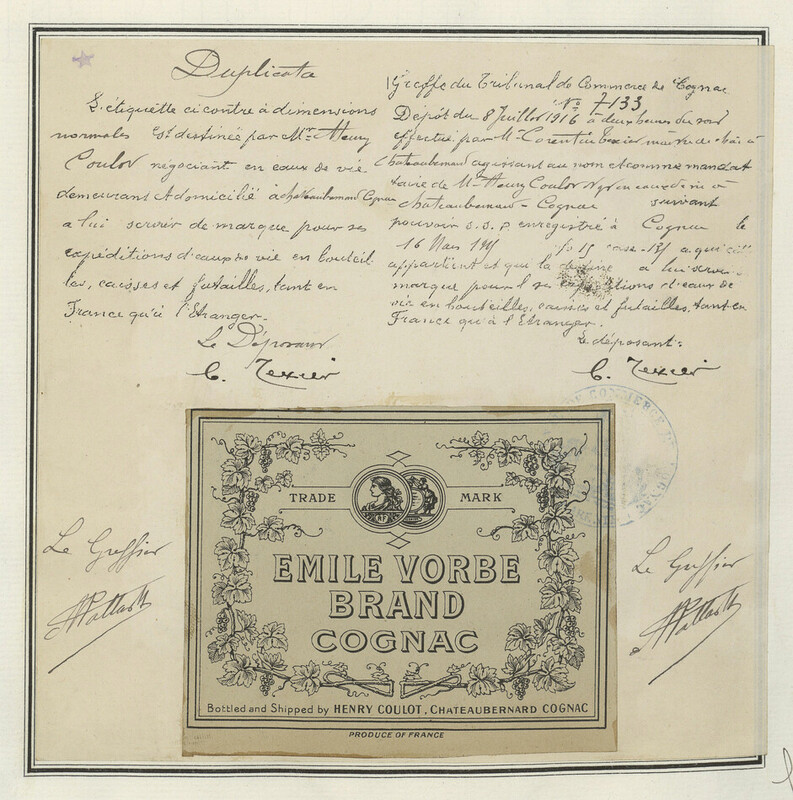 Duplicata
L'étiquette ci contre à dimensions
normales est destinée par Mr Henry
Coulot négociant en eaux de vie
demeurant et domicilié à chateaubernard Cognac
a lui servir de marque pour ses
expéditions d'eaux de vie en bouteil
les, caisses et futailles, tant en
France qu'à l'Etranger.
Le Déposant
C. Texier
Greffe du Tribunal de Commerce de Cognac
No 7133
Dépôt du 8 Juillet 1916 à deux heures du soir
effectué par Mr Corentin Texier
Chateaubernard agissant au nom et comme mandat
taire de Mr Henry Coulot Negt en eaux de vie à
chateaubernard - Cognac suivant
pouvoir s.s.p. enregistré à Cognac le
16 Mars fo 15 case a qui elle
appartient et que la destine a lui servir
marque pour l se expéditions d'eaux de
vie en bouteilles, caisses et futailles, tant en
France qu'à l'Etranger.
Le déposant:
C. Texier
DE COMMERCE D COGNAC
TRADE MARK
EMILE VORBE
BRAND
COGNAC
Bottled and Shipped by HENRY COULOT, CHATEAUBERNARD COGNAC
PRODUCE OF FRANCE
Le Greffier
Le Greffier